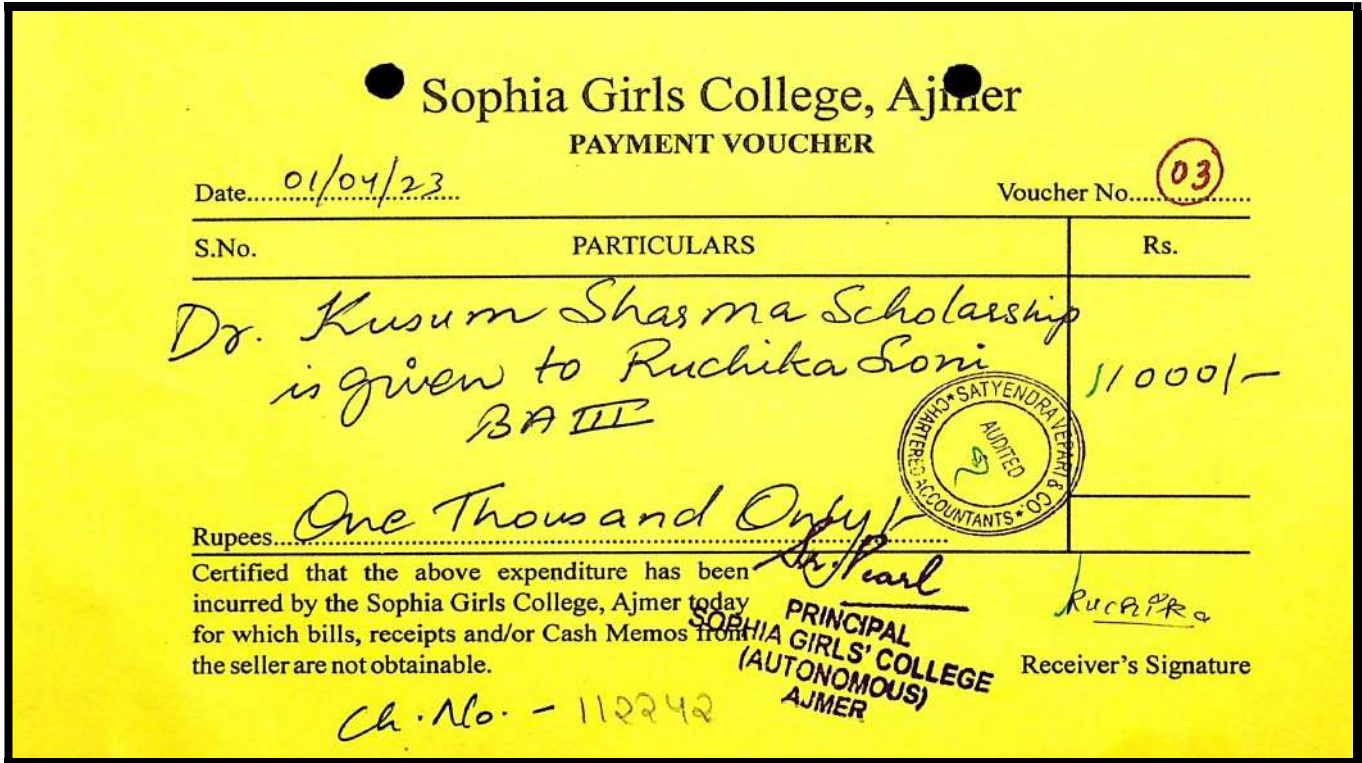 Sophia Girls College, Ajmer
PAYMENT VOUCHER
Date....01/04/23....
Voucher No....03....
S.No. PARTICULARS Rs.
Dr. Kusum Sharma Scholarship
is given to Ruchika Soni
BA III
1000/-
CHARTERED ACCOUNTANTS * SATYENDRA VEPARI & CO *
AUDITED
Rupees....One Thousand Only/-
Certified that the above expenditure has been
incurred by the Sophia Girls College, Ajmer today
for which bills, receipts and/or Cash Memos from
the seller are not obtainable.
Sr. Pearl
PRINCIPAL
SOPHIA GIRLS' COLLEGE
(AUTONOMOUS)
AJMER
Ruchika
Receiver's Signature
Ch. No. - 112242